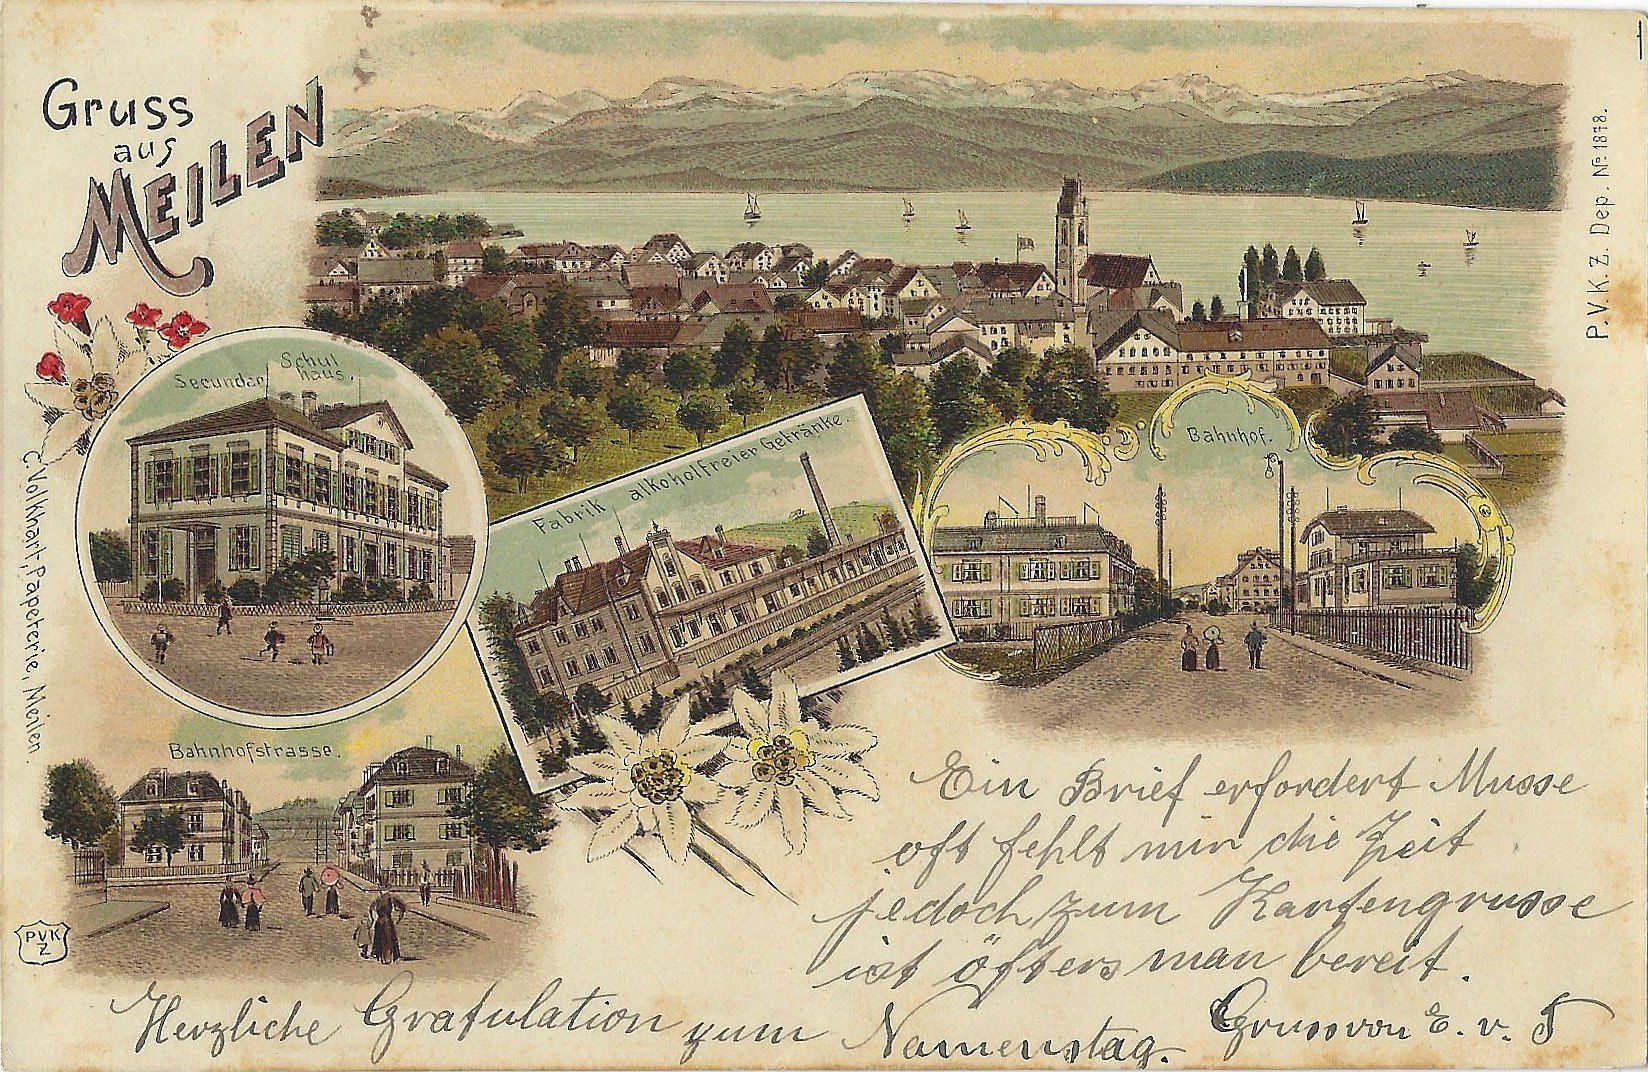 Gruss
aus
MEILEN
P.V.K.Z. Dep. Nº 1878.
Secundar Schul
haus.
Fabrik alkoholfreier Getränke.
Bahnhof.
C. Volkhart, Papeterie, Meilen.
Bahnhofstrasse.
PVK
Z
Ein Brief erfordert Musse
oft fehlt mir die Zeit
jedoch zum Kartengrusse
ist öfters man bereit.
Herzliche Gratulation zum Namenstag.
Gruss von E. v. T